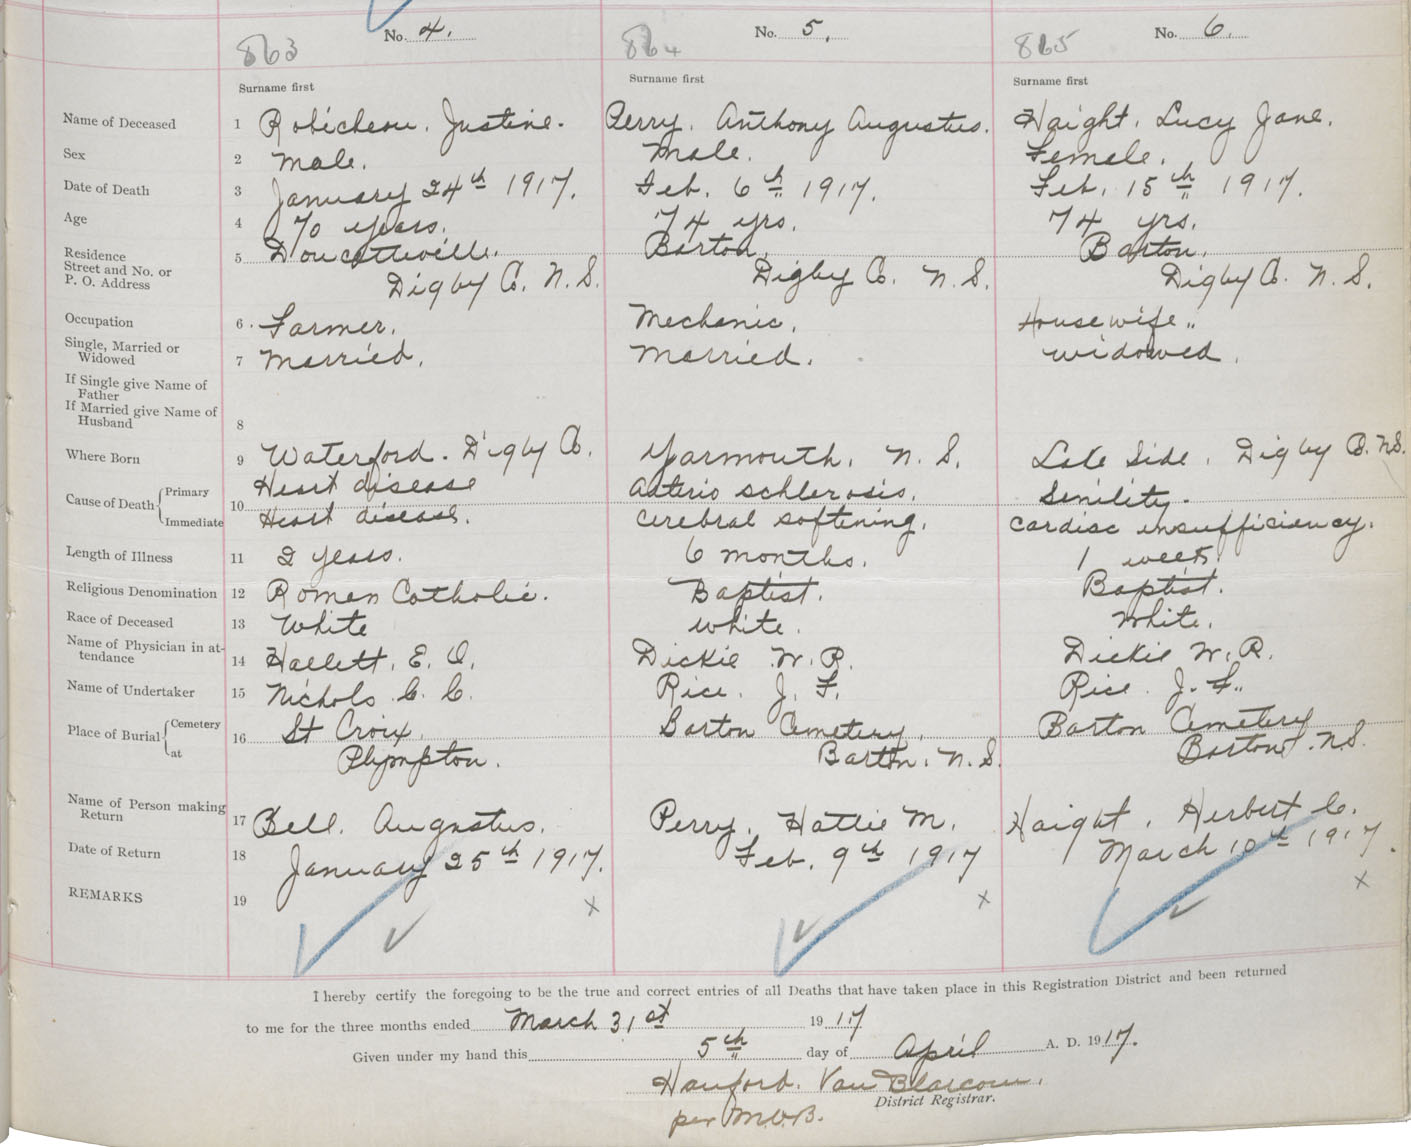 863 No. 4. 864 No. 5. 865 No. 6.
Surname first Surname first Surname first
Name of Deceased 1 Robicheau. Justine. Perry. Anthony Augustus. Haight. Lucy Jane.
Sex 2 Male. Male. Female.
Date of Death 3 January 24th 1917. Feb. 6th 1917. Feb. 15th 1917.
Age 4 70 years. 74 yrs. 74 yrs.
Residence 5 Doucetteville. Barton, Barton.
Street and No. or
P. O. Address Digby Co. N.S. Digby Co. N.S. Digby Co. N.S.
Occupation 6 Farmer. Mechanic. Housewife.
Single, Married or
Widowed 7 Married. Married. widowed.
If Single give Name of
Father
If Married give Name of
Husband 8
Where Born 9 Waterford. Digby Co. Yarmouth. N.S. Lake Side. Digby Co. N.S.
Cause of Death Primary 10 Heart disease Arterio schlerosis. Senility.
Immediate Heart disease. Cerebral softening. Cardiac insufficiency.
Length of Illness 11 2 years. 6 months. 1 week.
Religious Denomination 12 Roman Catholic. Baptist. Baptist.
Race of Deceased 13 White white. White.
Name of Physician in at-
tendance 14 Hallett. E. O. Dickie W. R. Dickie W. R.
Name of Undertaker 15 Nichols C. C. Rice. J. F. Rice J. F.
Place of Burial Cemetery 16 St Croix. Barton Cemetery, Barton Cemetery
at Plympton. Barton. N.S. Barton. N.S.
Name of Person making
Return 17 Bell. Augustus. Perry. Hattie M. Haight. Herbert C.
Date of Return 18 January 25th 1917. Feb. 9th 1917 March 10th 1917.
REMARKS 19 x x x
I hereby certify the foregoing to be the true and correct entries of all Deaths that have taken place in this Registration District and been returned
to me for the three months ended March 31st 1917
Given under my hand this 5th day of April A. D. 1917.
Hanford. Van Blarcom.
District Registrar.
per M.V.B.